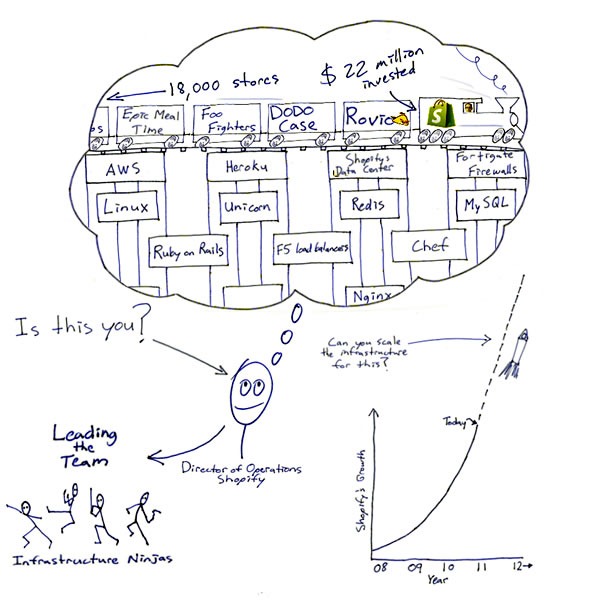 18,000 stores
$ 22 million
invested
Epic Meal
Time
Foo
Fighters
DODO
Case
Rovio
S
AWS
Heroku
Shopify's
Data Center
Fortigate
Firewalls
Linux
Unicorn
Redis
MySQL
Ruby on Rails
F5 load balancers
Chef
Nginx
Is this you?
Can you scale
the infrastructure
for this?
Leading
the
Team
Director of Operations
Shopify
Infrastructure Ninjas
Today
Shopify's Growth
08 09 10 11 12
Year